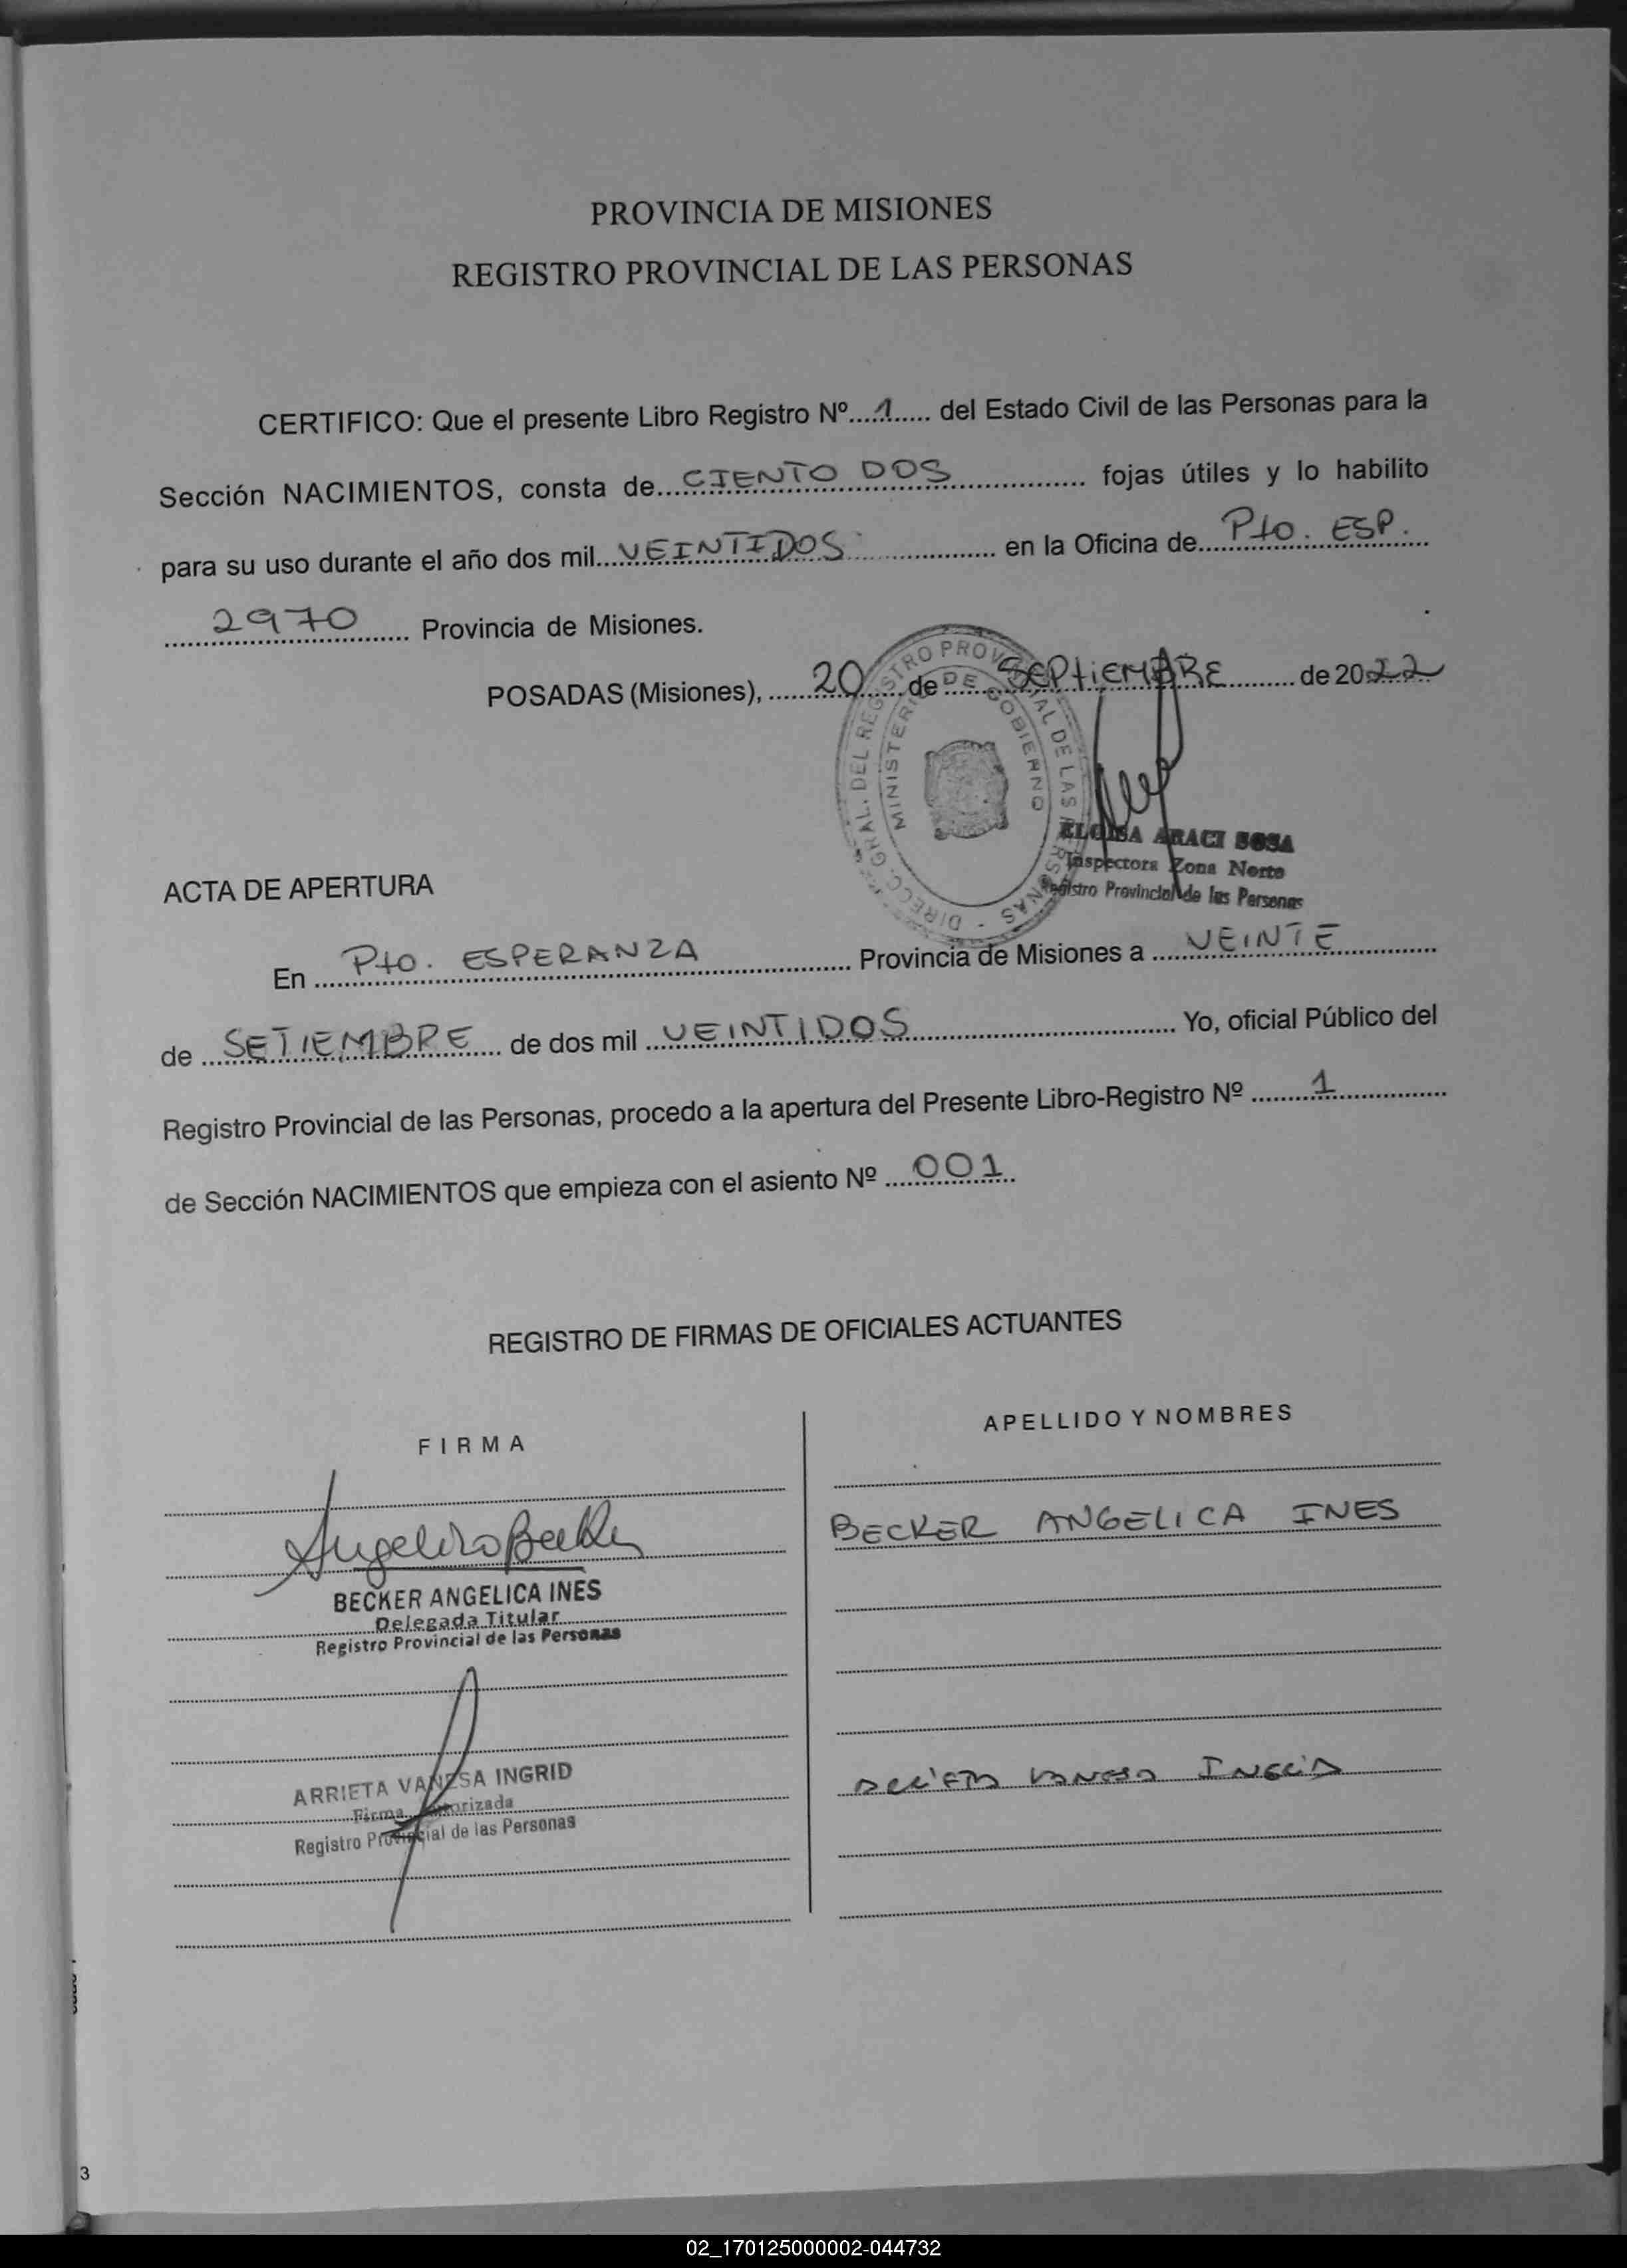 PROVINCIA DE MISIONES
REGISTRO PROVINCIAL DE LAS PERSONAS
CERTIFICO: Que el presente Libro Registro Nº....1..... del Estado Civil de las Personas para la
Sección NACIMIENTOS, consta de...CIENTO DOS............... fojas útiles y lo habilito
para su uso durante el año dos mil...VEINTIDOS............... en la Oficina de...Pto. ESP...
......2970...... Provincia de Misiones.
POSADAS (Misiones), ......20......de......SEPtiEMBRE.........de 2022
DIRECC. GRAL. DEL REGISTRO PROVINCIAL DE LAS PERSONAS -
MINISTERIO DE GOBIERNO
ELOISA ARACI SOSA
Inspectora Zona Norte
Registro Provincial de las Personas
ACTA DE APERTURA
En ...Pto. ESPERANZA............... Provincia de Misiones a ...VEINTE............
de ...SETIEMBRE... de dos mil ...VEINTIDOS.................. Yo, oficial Público del
Registro Provincial de las Personas, procedo a la apertura del Presente Libro-Registro Nº .........1............
de Sección NACIMIENTOS que empieza con el asiento Nº ....001....
REGISTRO DE FIRMAS DE OFICIALES ACTUANTES
FIRMA
APELLIDO Y NOMBRES
Angelica Becker
BECKER ANGELICA INES
BECKER ANGELICA INES
Delegada Titular
Registro Provincial de las Personas
ARRIETA VANESA INGRID
ARRIETA VANESA INGRID
Firma Autorizada
Registro Provincial de las Personas
3
02_170125000002-044732